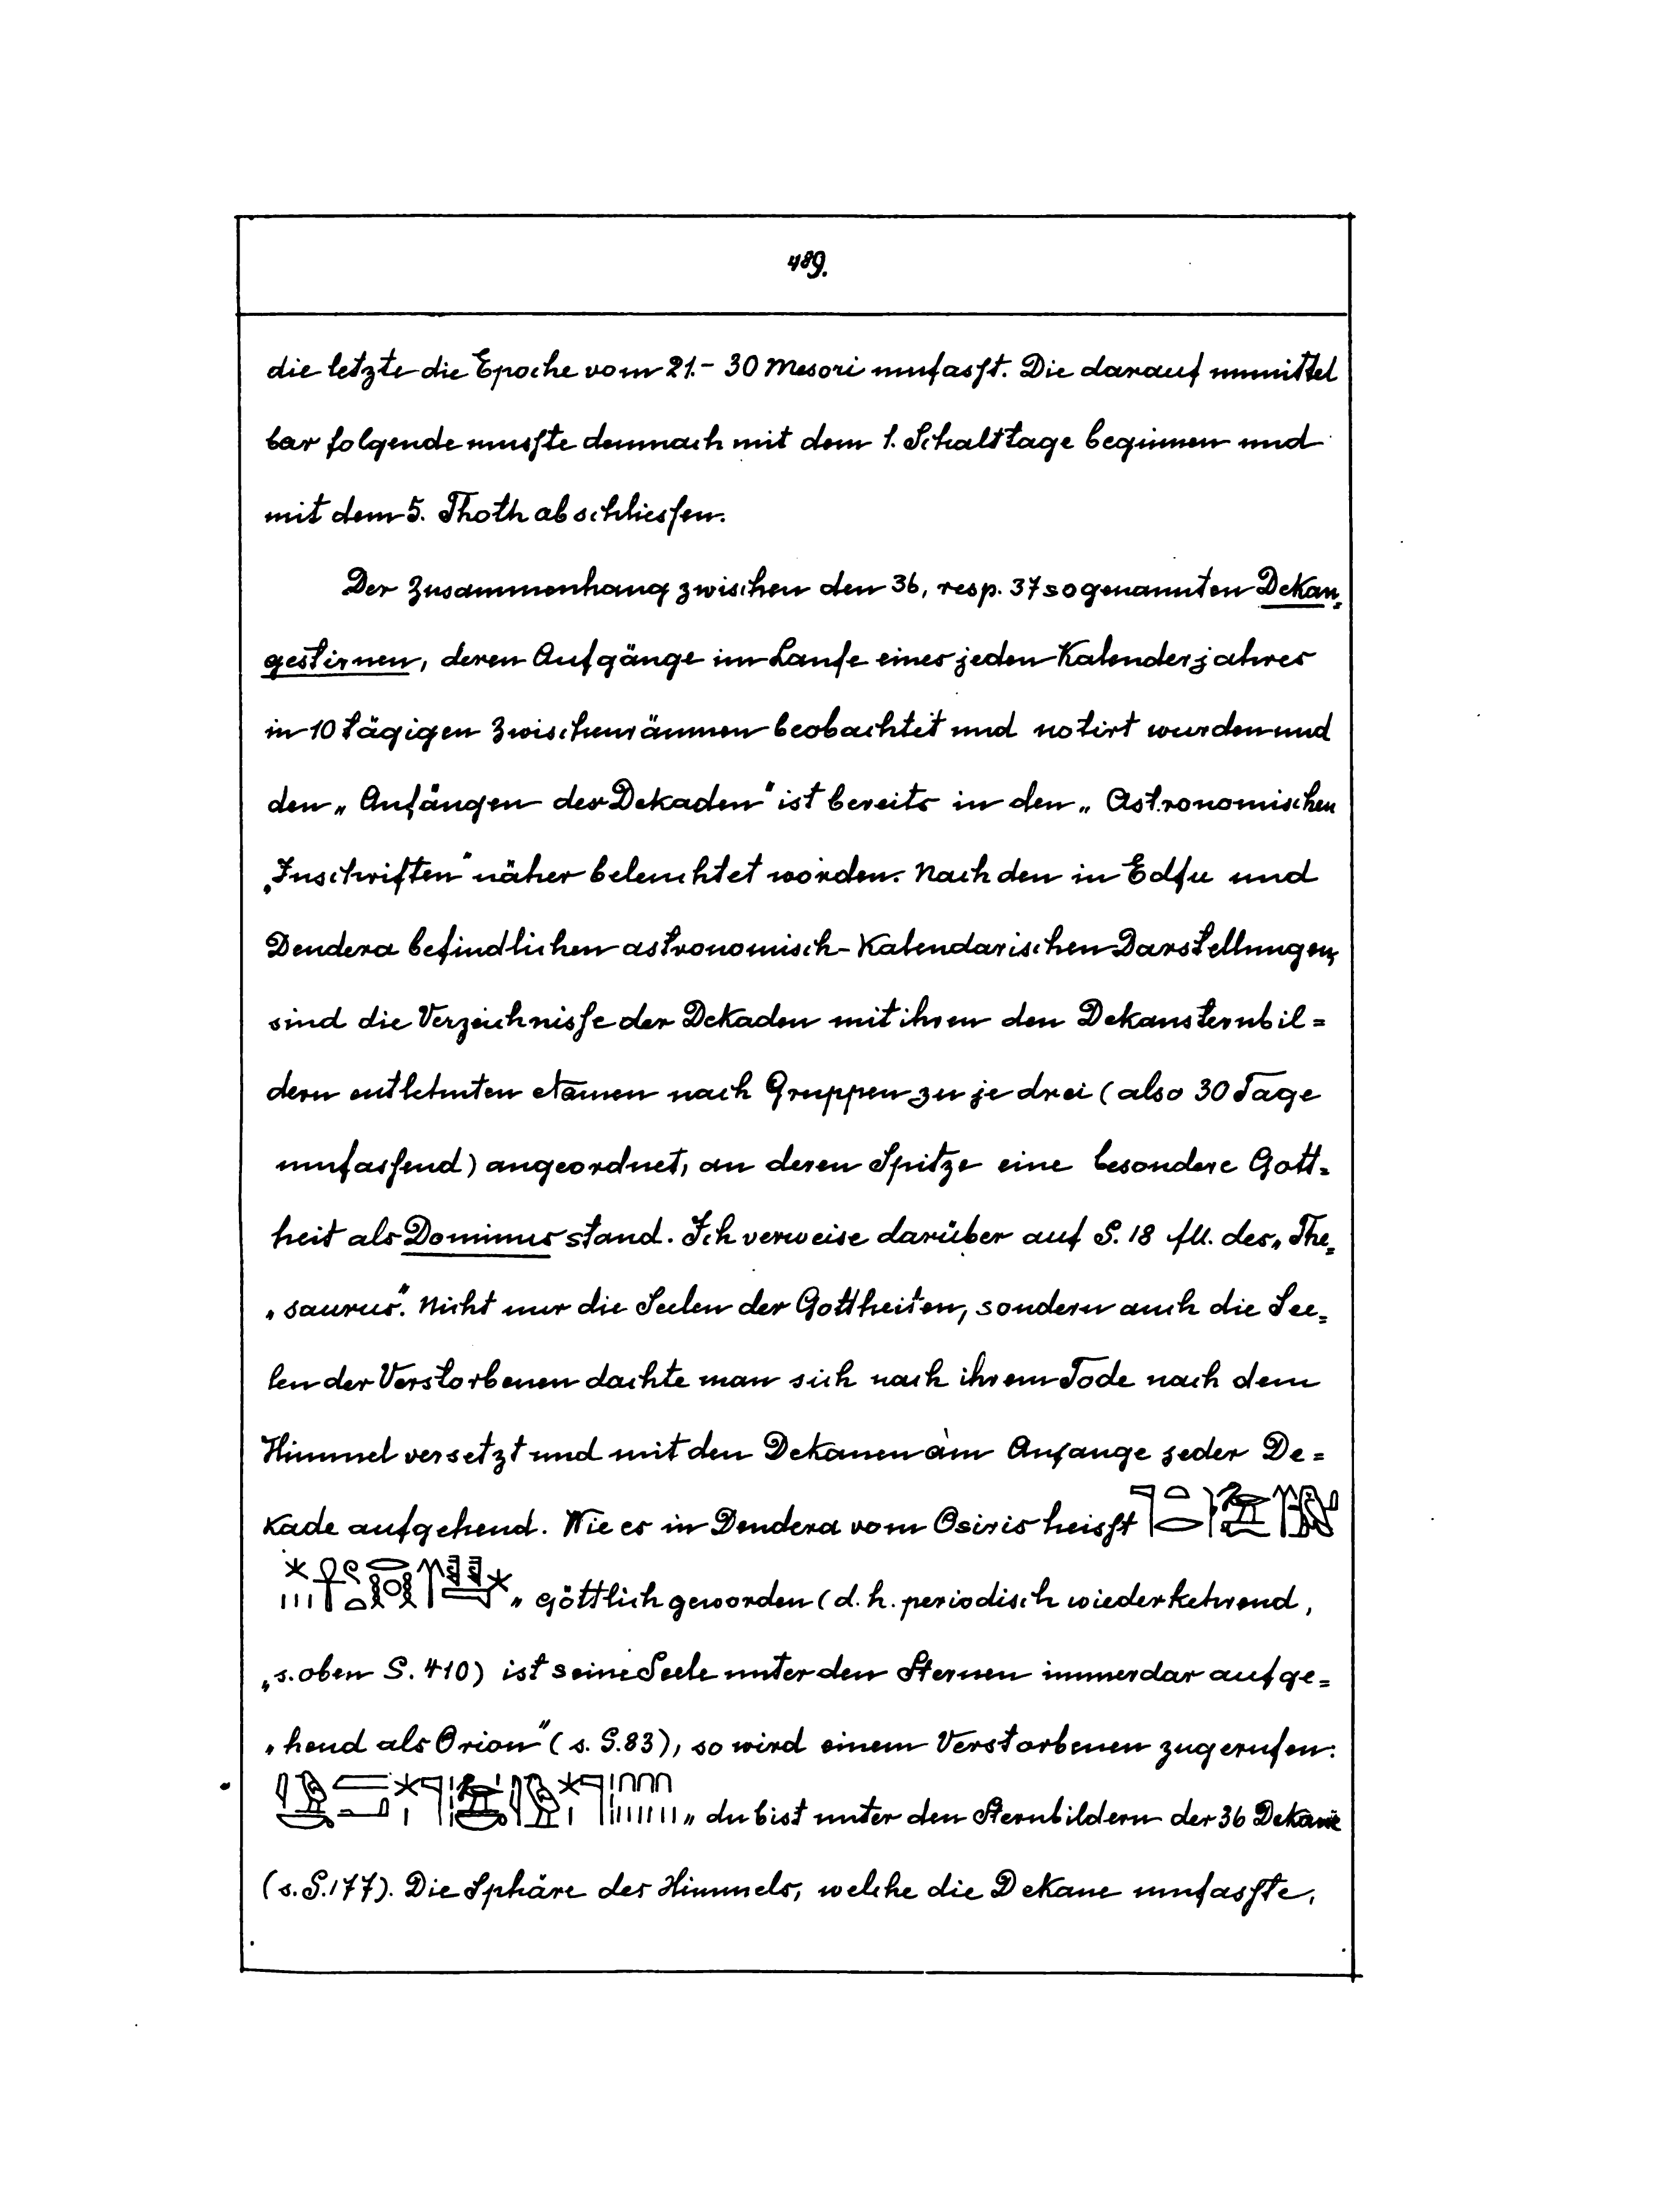 489.
die letzte die Epoche vom 21.- 30 Mesori umfasst. Die darauf unmittel
bar folgende musste demnach mit dem 1. Schalttage beginnen und
mit dem 5. Thoth abschliessen.
Der Zusammenhang zwischen den 36, resp. 37 sogenannten Dekan=
gestirnen, deren Aufgänge im Laufe eines jeden Kalenderjahres
in 10 tägigen Zwischenräumen beobachtet und notirt wurden und
den „Anfängen der Dekaden“ ist bereits in den „Astronomischen
„Inschriften“ näher beleuchtet worden. Nach den in Edfu und
Dendera befindlichen astronomisch-Kalendarischen Darstellungen,
sind die Verzeichnisse der Dekaden mit ihren den Dekansternbil=
dern entlehnten Namen nach Gruppen zu je drei (also 30 Tage
umfassend) angeordnet, an deren Spitze eine besondere Gott=
heit als Dominus stand. Ich verweise darüber auf S. 18 fll. des „The=
„saurus“. Nicht nur die Seelen der Gottheiten, sondern auch die See=
len der Verstorbenen dachte man sich nach ihrem Tode nach dem
Himmel versetzt und mit den Dekanen am Anfange jeder De=
kade aufgehend. Wie es in Dendera vom Osiris heisst
„göttlich geworden (d. h. periodisch wiederkehrend,
„s. oben S. 410) ist seine Seele unter den Sternen immerdar aufge=
„hend als Orion“ (s. S. 83), so wird einem Verstorbenen zugerufen:
„du bist unter den Sternbildern der 36 Dekane
(s. S. 177). Die Sphäre des Himmels, welche die Dekane umfasste,